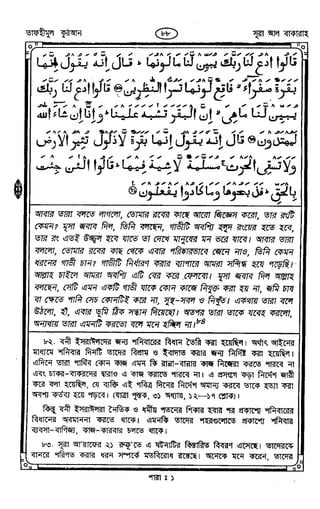 তাফহীমুল কুরআন ৮৮ সূরা আল বাকারাহ
قَالُوا ادْعُ لَنَا رَبَّكَ يُبَيِّنْ لَّنَا مَا لَوْنُهَا ۚ قَالَ إِنَّهُ يَقُولُ إِنَّهَا
بَقَرَةٌ صَفْرَاءُ ۙ فَاقِعٌ لَّوْنُهَا تَسُرُّ النَّاظِرِينَ ۝ قَالُوا ادْعُ لَنَا رَبَّكَ
يُبَيِّنْ لَّنَا مَا هِيَ ۙ إِنَّ الْبَقَرَ تَشَابَهَ عَلَيْنَا ۖ وَإِنَّا إِنْ شَاءَ اللَّهُ
لَمُهْتَدُونَ ۝ قَالَ إِنَّهُ يَقُولُ إِنَّهَا بَقَرَةٌ لَّا ذَلُولٌ تُثِيرُ الْأَرْضَ
وَلَا تَسْقِي الْحَرْثَ ۚ مُسَلَّمَةٌ لَّا شِيَةَ فِيهَا ۚ قَالُوا الْآنَ جِئْتَ
بِالْحَقِّ ۚ فَذَبَحُوهَا وَمَا كَادُوا يَفْعَلُونَ ۝
আবার তারা বলতে লাগলো, তোমার রবের কাছে আরো জিজ্ঞেস করো, তার রংটি
কেমন? মূসা জবাব দিল, তিনি বলছেন, গাভীটি অবশ্যি হলুদ রংয়ের হতে হবে,
তার রং এতই উজ্জ্বল হবে যাতে তা দেখে মানুষের মন ভরে যাবে। আবার তারা
বললো, তোমার রবের কাছ থেকে এবার পরিষ্কারভাবে জেনে নাও, তিনি কেমন
ধরনের গাভী চান? গাভীটি নির্ধারণ করার ব্যাপারে আমরা সন্দিগ্ধ হয়ে পড়েছি।
আল্লাহ চাইলে আমরা অবশ্যি এটি বের করে ফেলবো। মূসা জবাব দিল আল্লাহ
বলছেন, সেটি এমন একটি গাভী যাকে কোন কাজে নিযুক্ত করা হয় না, জমি চাষ
বা ক্ষেতে পানি সেচ কোনটিই করে না, সুস্থ-সবল ও নিখুঁত। একথায় তারা বলে
উঠলো, হাঁ, এবার তুমি ঠিক সন্ধান দিয়েছো। অতপর তারা তাকে যবেহ করলো,
অন্যথায় তারা এমনটি করতো বলে মনে হচ্ছিল না।৮৪
৮২. বনী ইসরাঈলদের জন্য শনিবারের বিধান তৈরি করা হয়েছিল। অর্থাৎ আইনের
মাধ্যমে শনিবার দিনটি তাদের বিশ্রাম ও ইবাদাত করার জন্য নির্দিষ্ট করা হয়েছিল।
এদিনে তারা পার্থিব কোন কাজ এমন কি রান্না-বান্নার কাজ নিজেরা করতে পারবে না
এবং চাকর-বাকরদের দ্বারাও এ কাজ করাতে পারবে না। এ প্রসঙ্গে কড়া নির্দেশ জারী
করে বলা হয়েছিল, যে ব্যক্তি এই পবিত্র দিনের নির্দেশ অমান্য করবে তাকে হত্যা করা
অবশ্য কর্তব্য হয়ে পড়বে। (যাত্রা পুস্তক, ৩১ অধ্যায়, ১২–১৭ শ্লোক)।
কিন্তু বনী ইসরাঈলরা নৈতিক ও ধর্মীয় পতনের শিকার হবার পর প্রকাশ্যে শনিবারের
বিধানের অবমাননা করতে থাকে। এমনকি তাদের শহরগুলোতে প্রকাশ্যে শনিবার
ব্যবসা-বাণিজ্য, কাজ-কারবার চলতে থাকে।
৮৩. সূরা আ'রাফের ২১ রুকূ'তে এ ঘটনাটির বিস্তারিত বিবরণ এসেছে। তাদেরকে
বানরে পরিণত করার ধরন সম্পর্কে মতবিরোধ রয়েছে। অনেকে মনে করেন, তাদের
পারা : ১